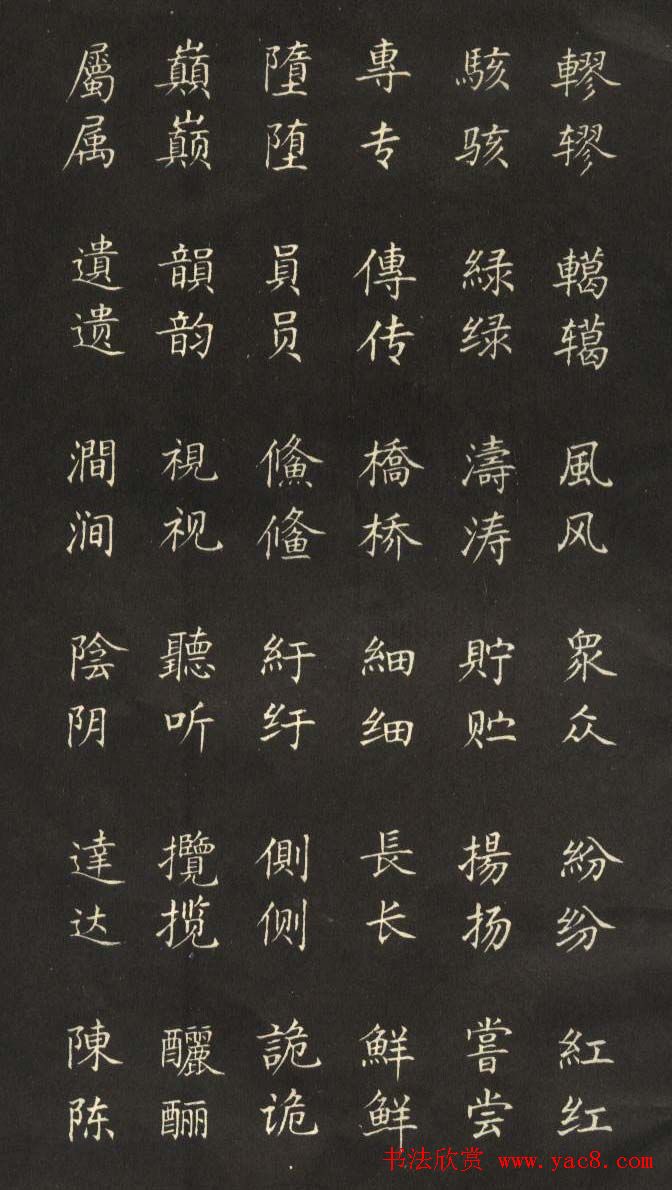 轇轕風眾紛紅
轇轕风众纷红
駭綠濤貯揚嘗
骇绿涛贮扬尝
專傳橋細長鮮
专传桥细长鲜
墮員鯈紆側詭
堕员鯈纡侧诡
巔韻視聽攬釃
巅韵视听揽酾
屬遺澗陰達陳
属遗涧阴达陈
书法欣赏 www.yac8.com